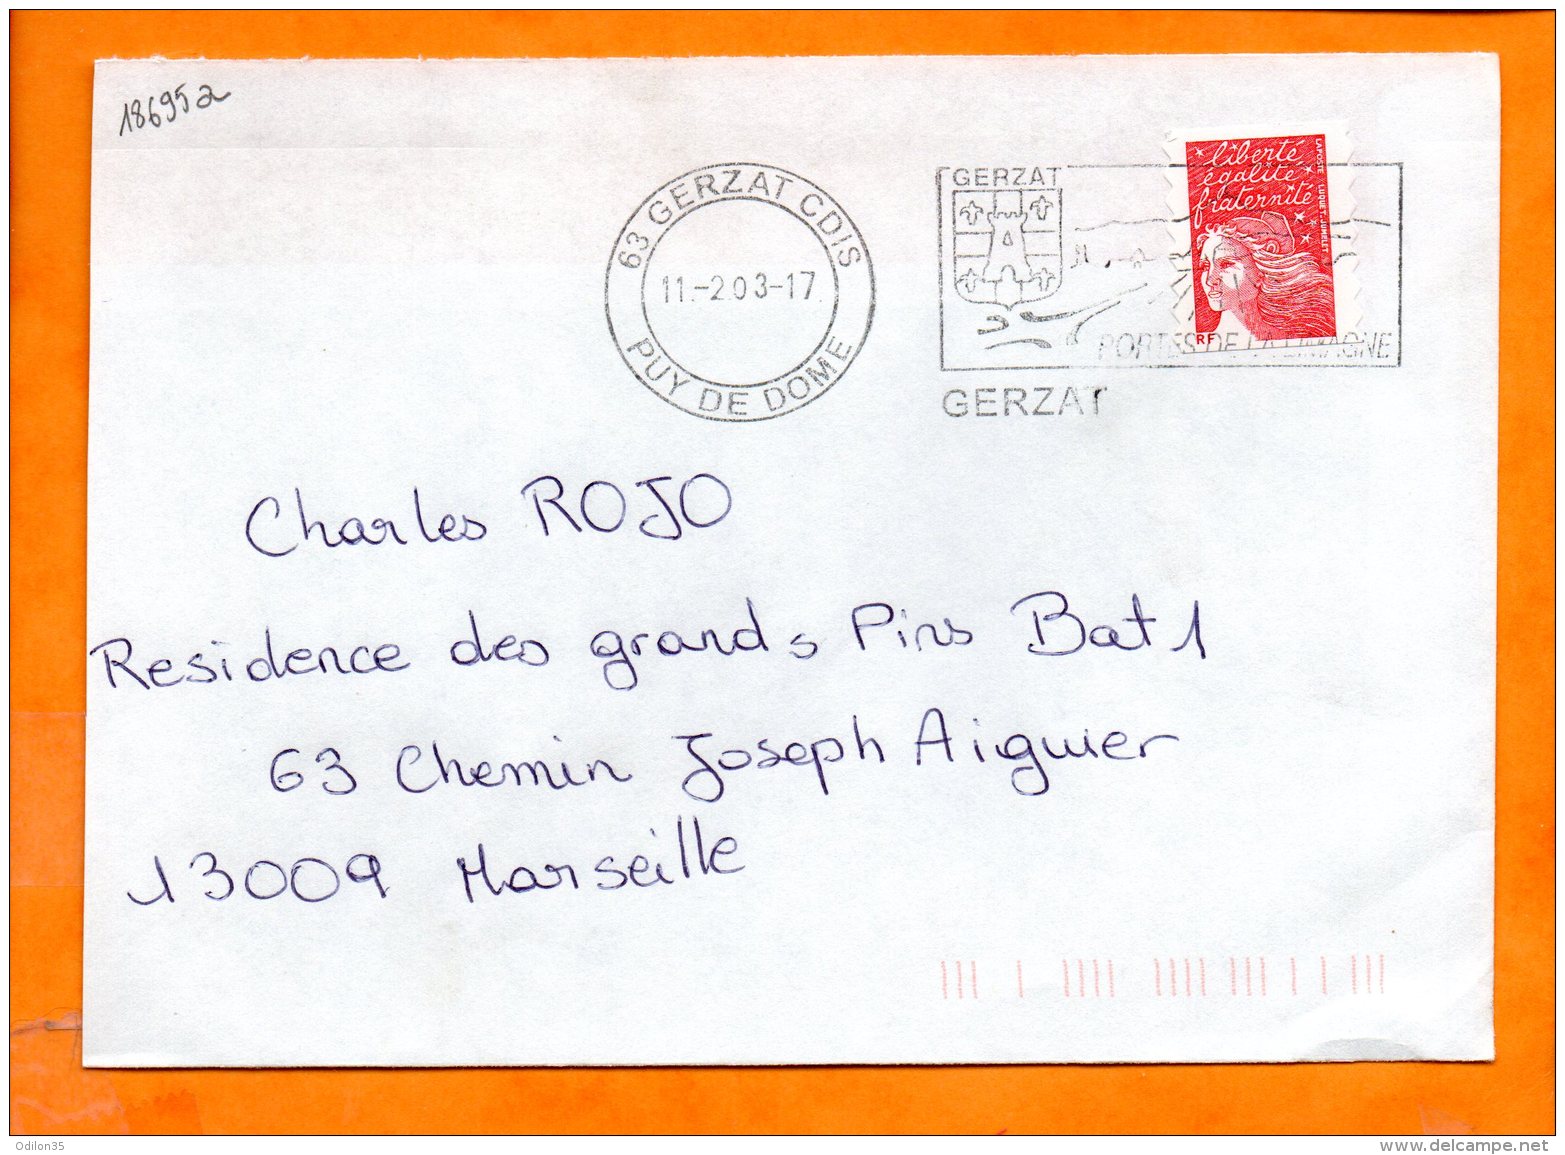 18695a
63 GERZAT CDIS
11.-2.03-17.
PUY DE DOME
GERZAT
PORTES DE LA LIMAGNE
GERZAT
liberté
égalité
fraternité
LAPOSTE LUQUET.JUMELET
RF
Charles ROJO
Residence des grands Pins Bat 1
63 Chemin Joseph Aiguier
13009 Marseille
Odilon35
www.delcampe.net